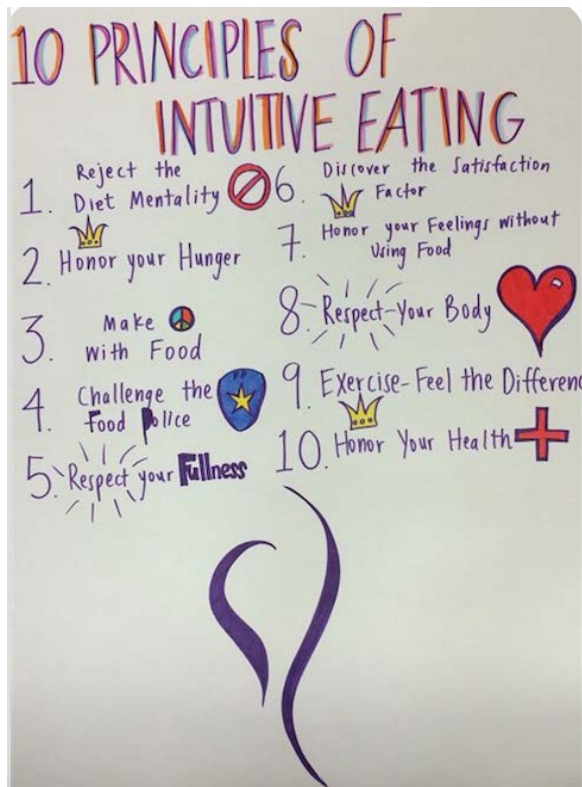 10 PRINCIPLES OF
INTUITIVE EATING
1. Reject the
Diet Mentality
2. Honor your Hunger
3. Make
with Food
4. Challenge the
Food Police
5. Respect your Fullness
6. Discover the Satisfaction
Factor
7. Honor your Feelings without
Using Food
8. Respect-Your Body
9. Exercise-Feel the Differenc
10. Honor Your Health